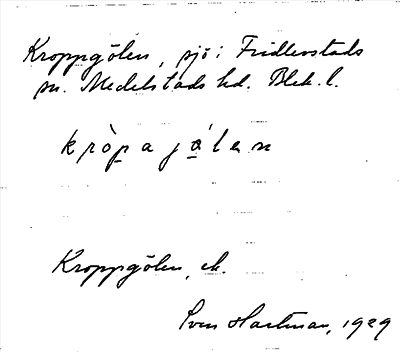 Kroppgölen, sjö i Fridlevstads
sn. Medelstads hd. Blek. l.
kròpajálen
Kroppgölen, ek.
Sven Hartman, 1929